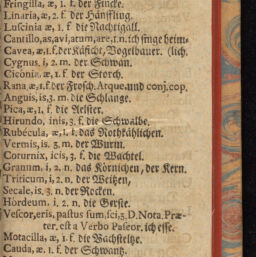 Fringilla, æ, 1. f. der Fincke.
Linaria, æ, 1. f. der Hänffling.
Luscinia æ, 1. f. die Nachtigall.
Cantillo, as, avi, atum, are, 1. n. ich singe heim-
Cavea, æ, 1. f. der Käficht, Vogelbauer. (lich.
Cygnus, i, 2. m. der Schwan.
Ciconia, æ, 1. f. der Storch.
Rana æ, 1. f. der Frosch. Atque, und conj. cop.
Anguis, is, 3. m. die Schlange.
Pica, æ, 1. f. die Aelster.
Hirundo, inis, 3. f. die Schwalbe.
Rubécula, æ, 1. f. das Rothkählichen.
Vermis, is, 3. m. der Wurm.
Coturnix, icis, 3. f. die Wachtel.
Granum, i, 2. n. das Körnichen, der Kern.
Triticum, i, 2. n. der Weitzen,
Secale, is, 3. n. der Rocken.
Hordeum, i, 2. n. die Gerste.
Vescor, eris, pastus sum, sci, 3. D. Nota. Præ-
ter. est a Verbo Pascor, ich esse.
Motacilla, æ, 1. f. die Bachsteltze.
Cauda, æ, 1. f. der Schwantz.